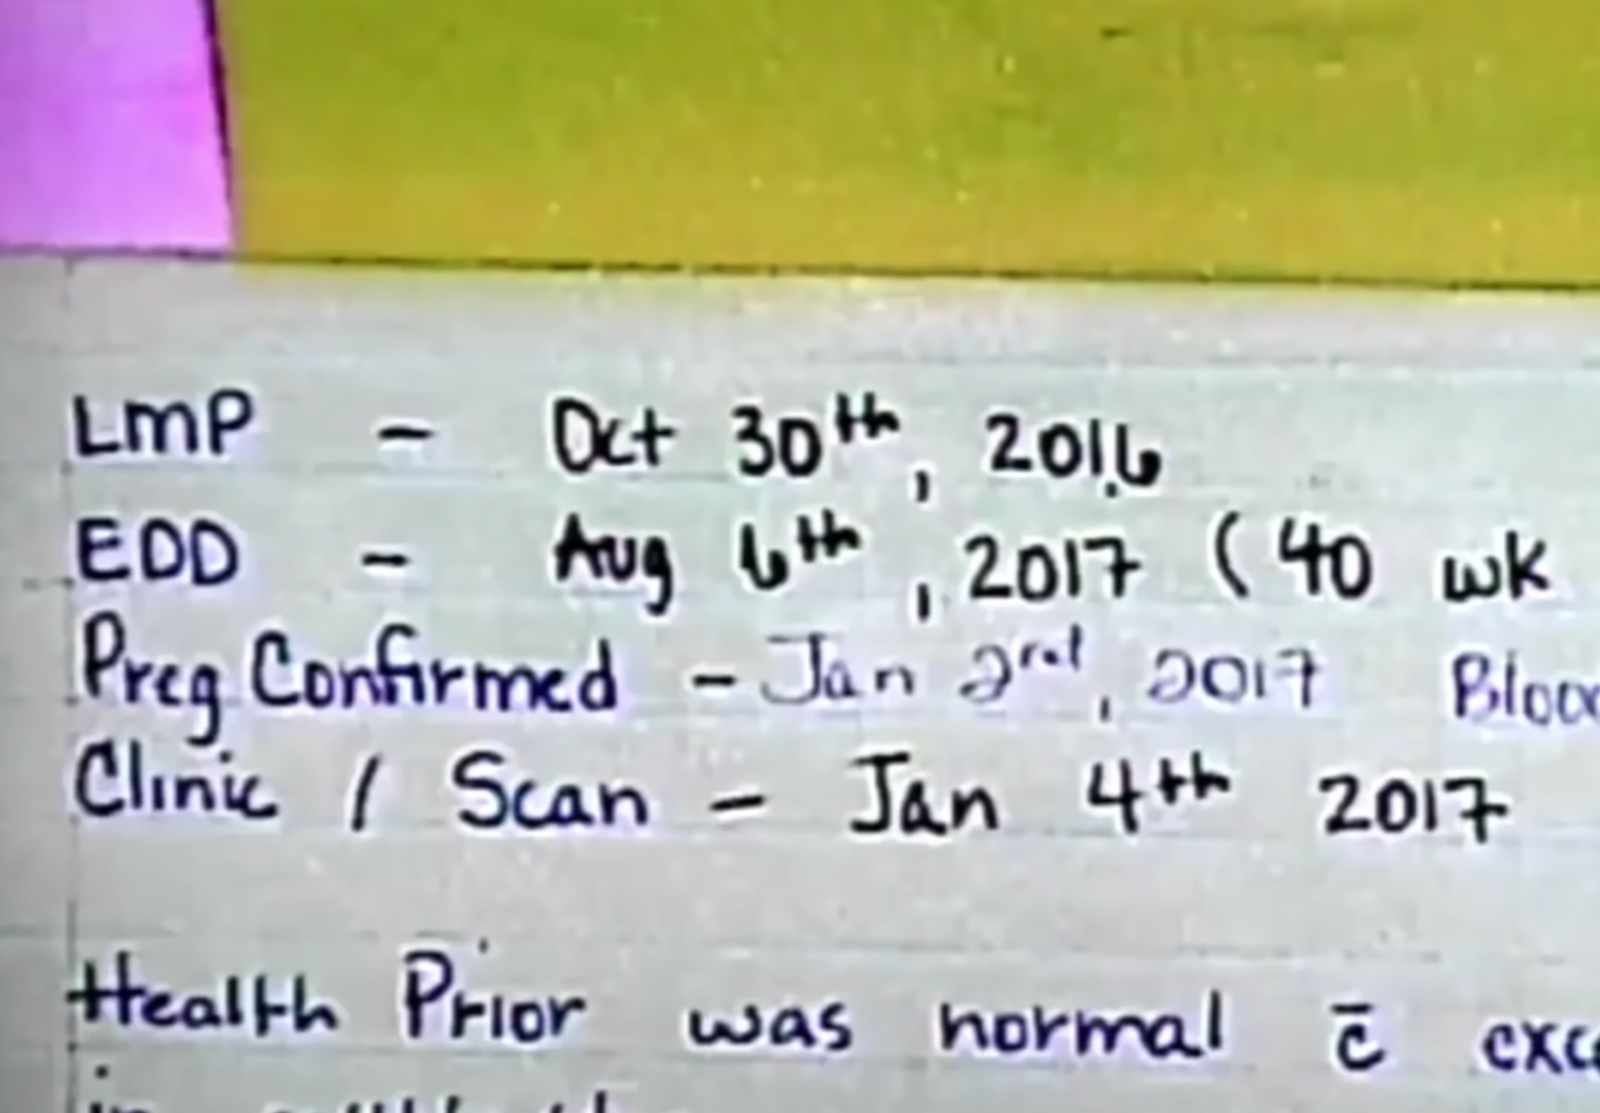 LMP - Oct 30th, 2016
EDD - Aug 6th, 2017 (40 wk
Preg Confirmed - Jan 2rd, 2017
Clinic / Scan - Jan 4th 2017
Health Prior was normal c̄
in